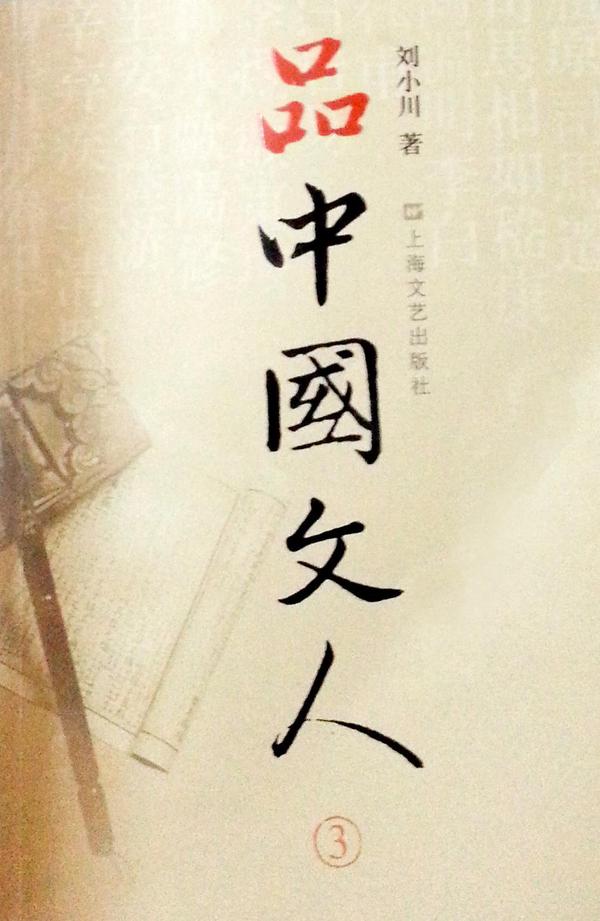 刘小川 著
上海文艺出版社
品中國文人
3